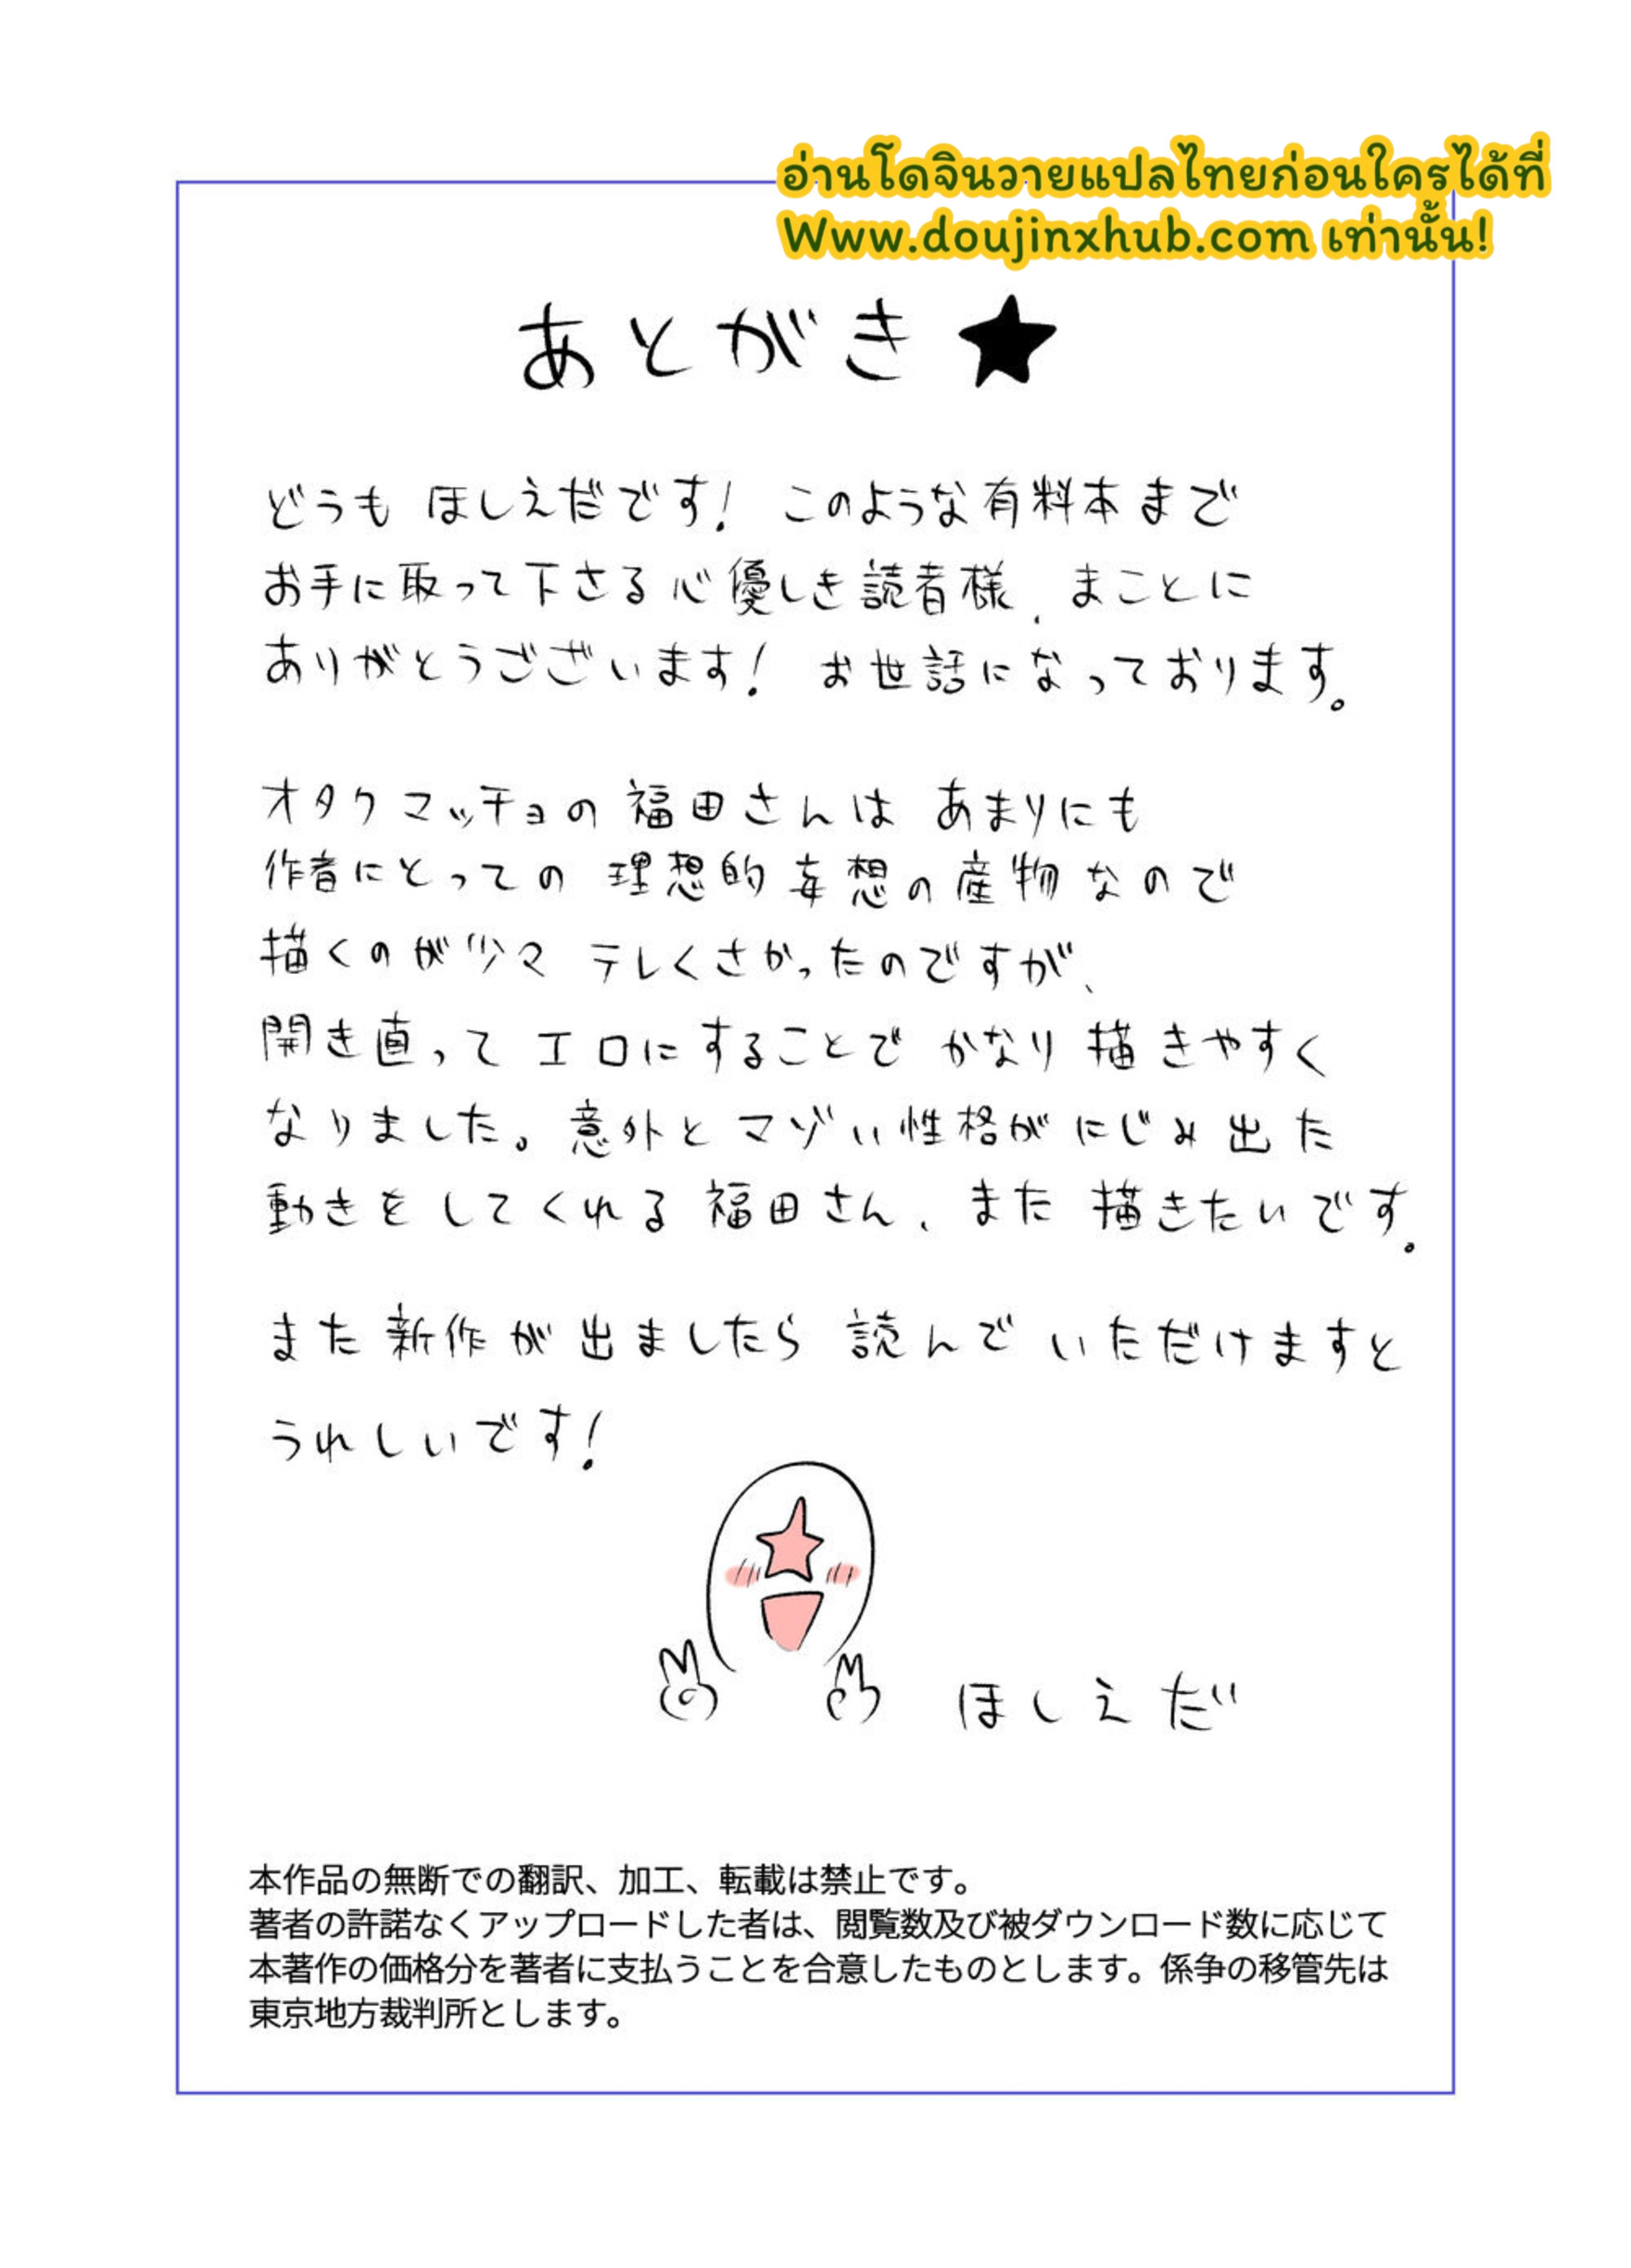 อ่านโดจินวายแปลไทยก่อนใครได้ที่
Www.doujinxhub.com เท่านั้น!
あとがき★
どうも ほしえだです! このような有料本まで
お手に取って下さる心優しき読者様、まことに
ありがとうございます! お世話になっております。
オタクマッチョの福田さんは あまりにも
作者にとっての 理想的妄想の産物なので
描くのが少々 テレくさかったのですが、
開き直って エロにすることで かなり描きやすく
なりました。意外と マゾい性格が にじみ出た
動きをしてくれる 福田さん、また 描きたいです。
また新作が出ましたら 読んで いただけますと
うれしいです!
ほしえだ
本作品の無断での翻訳、加工、転載は禁止です。
著者の許諾なくアップロードした者は、閲覧数及び被ダウンロード数に応じて
本著作の価格分を著者に支払うことを合意したものとします。係争の移管先は
東京地方裁判所とします。